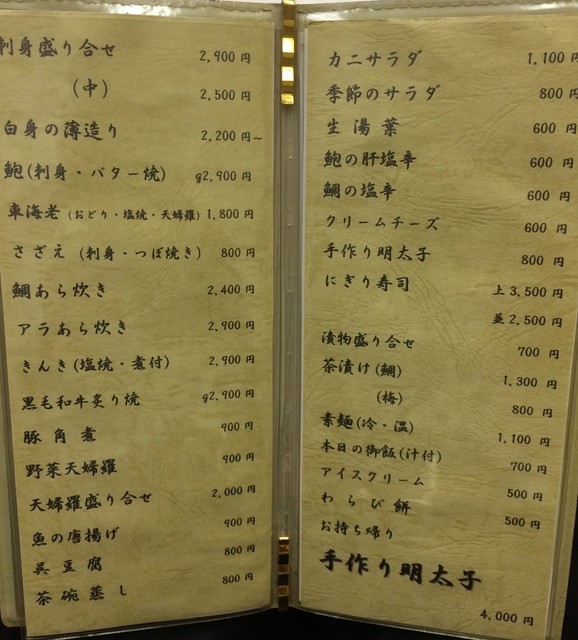 刺身盛り合せ 2,900 円
(中) 2,500 円
白身の薄造り 2,200 円～
鮑(刺身・バター焼) g2,900 円
車海老 (おどり・塩焼・天婦羅) 1,800 円
さざえ (刺身・つぼ焼き) 800 円
鯛あら炊き 2,400 円
アラあら炊き 2,900 円
きんき(塩焼・煮付) 2,900 円
黒毛和牛炙り焼 g2,900 円
豚角煮 900 円
野菜天婦羅 900 円
天婦羅盛り合せ 2,000 円
魚の唐揚げ 900 円
呉豆腐 800 円
茶碗蒸し 800 円
カニサラダ 1,100 円
季節のサラダ 800 円
生湯葉 600 円
鮑の肝塩辛 600 円
鯛の塩辛 600 円
クリームチーズ 600 円
手作り明太子 800 円
にぎり寿司 上 3,500 円
並 2,500 円
漬物盛り合せ 700 円
茶漬け(鯛) 1,300 円
(梅) 800 円
素麺(冷・温) 1,100 円
本日の御飯(汁付) 700 円
アイスクリーム 500 円
わらび餅 500 円
お持ち帰り
手作り明太子
4,000 円